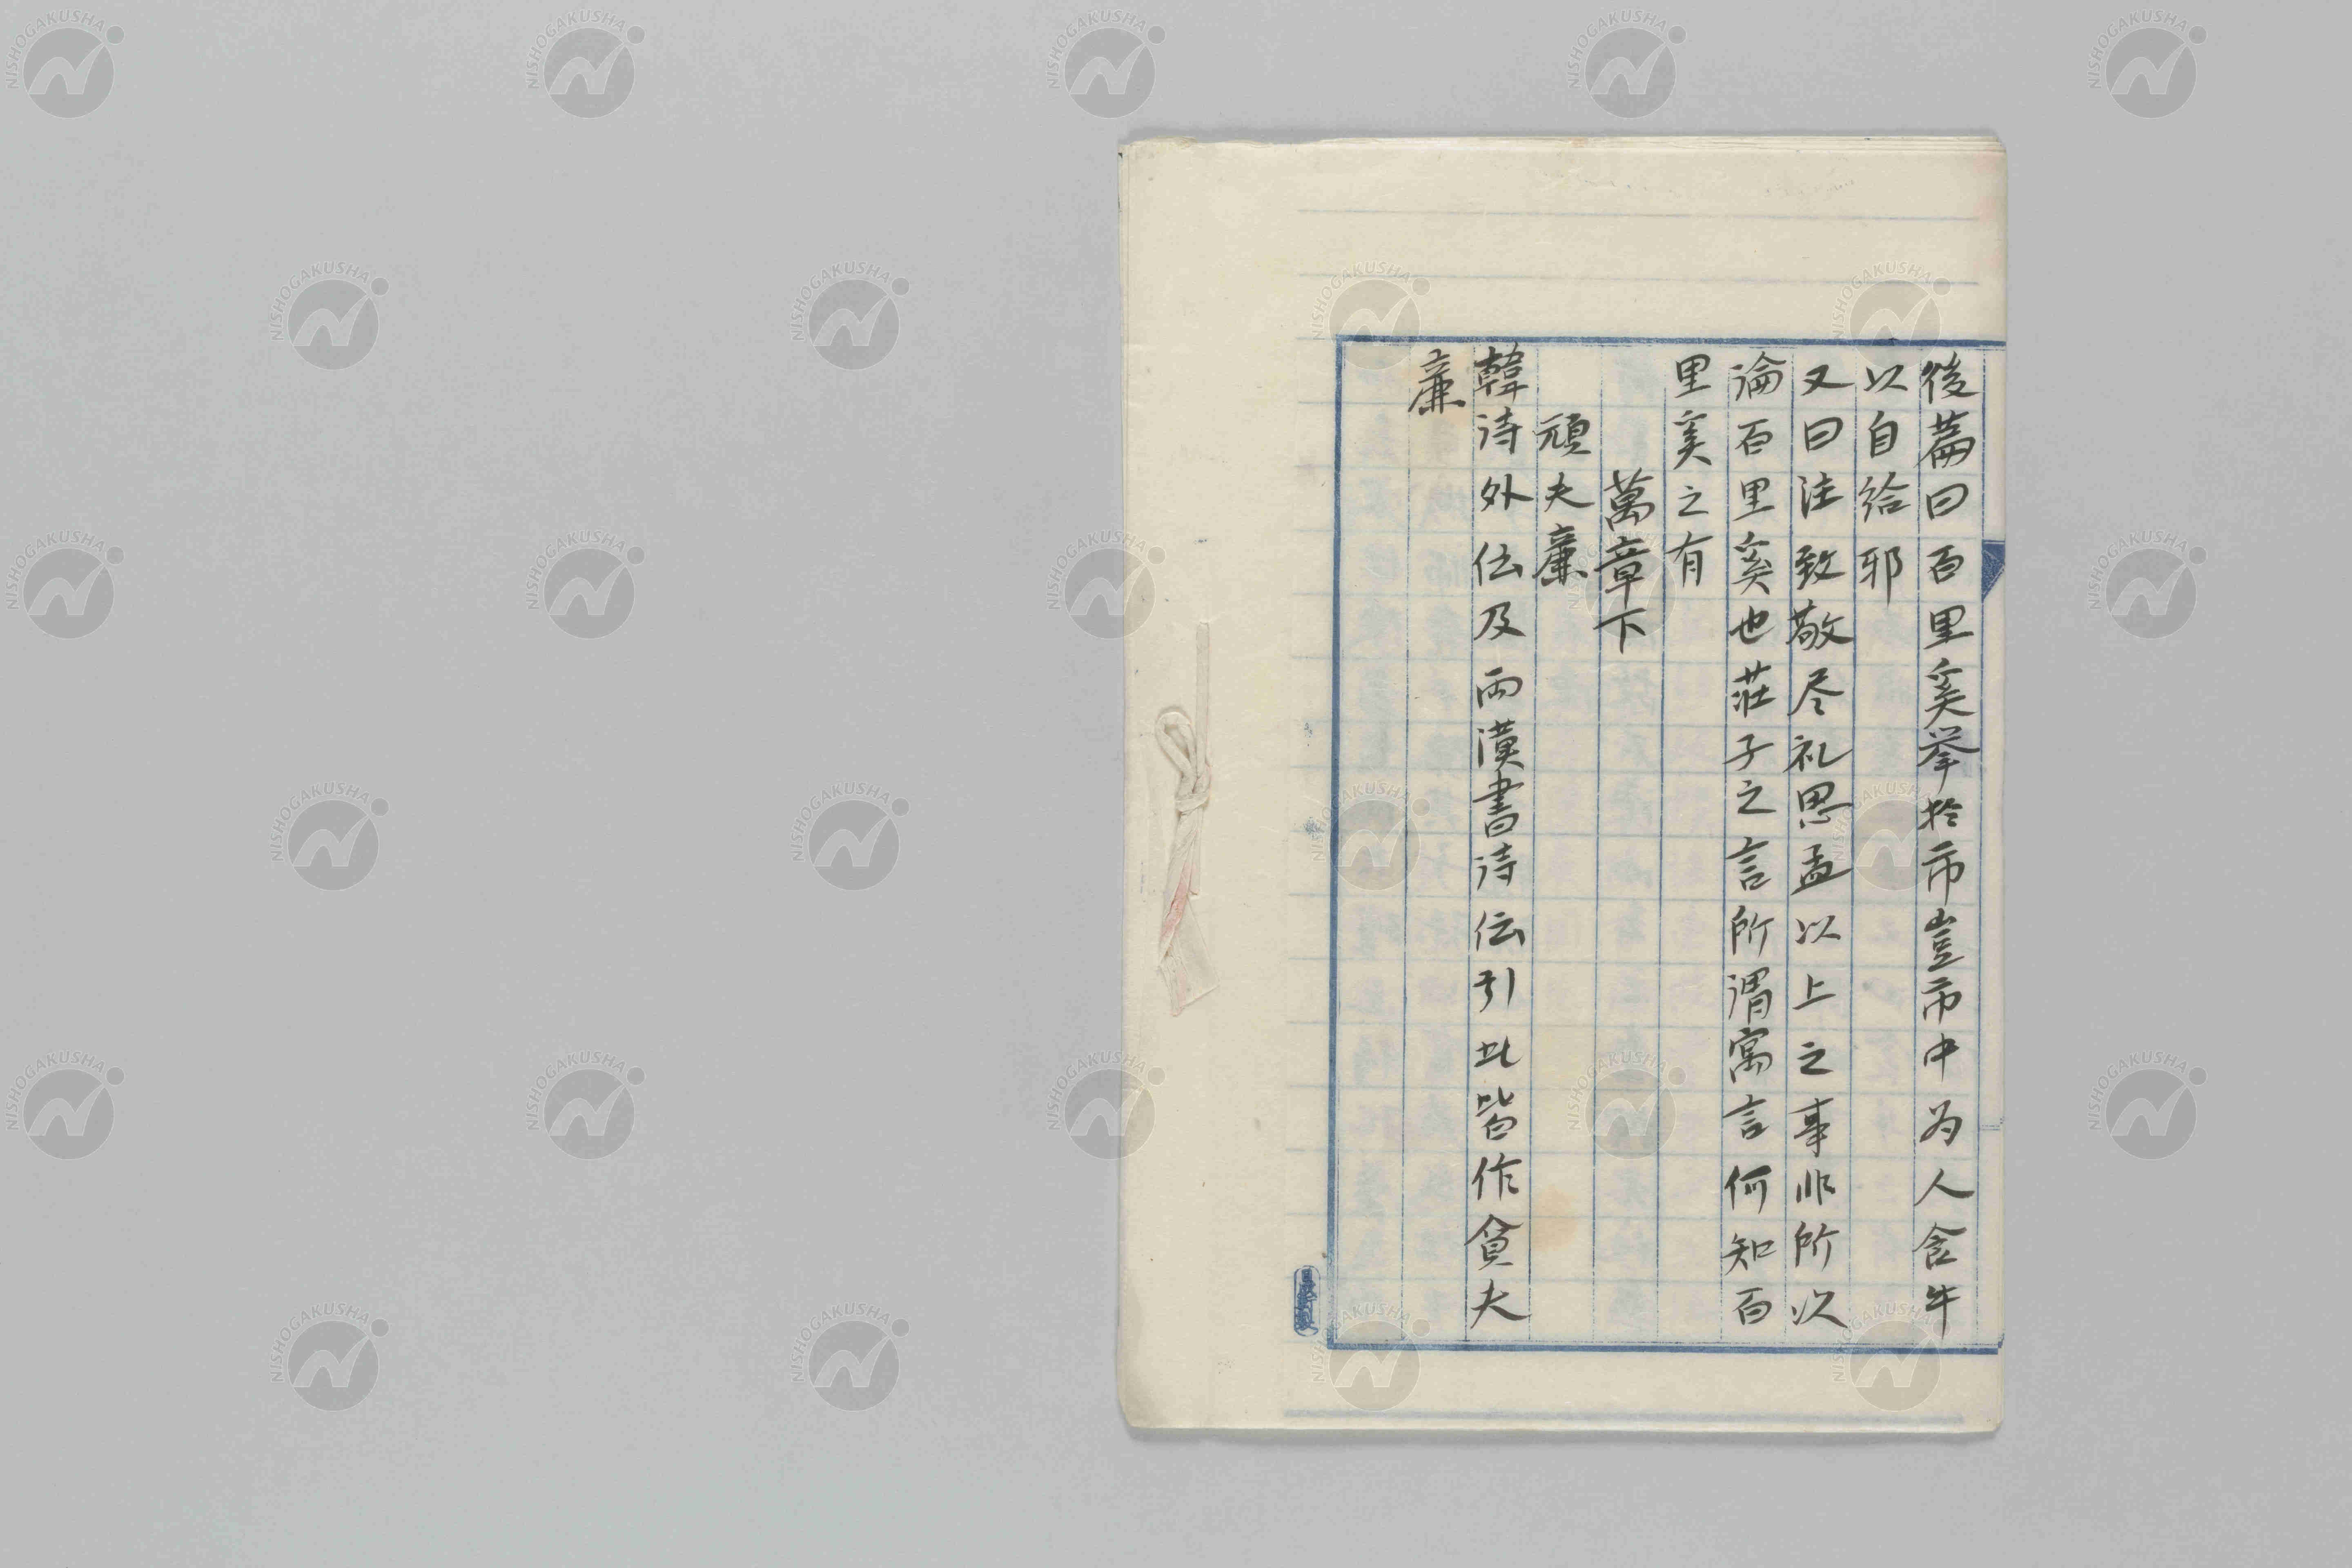 後篇曰百里奚挙於市豈市中为人食牛
以自给耶
又曰注致敬尽礼思孟以上之事非所以
論百里奚也荘子之言所謂寓言何知百
里奚之有
萬章下
頑夫廉
韓诗外伝及両漢書诗伝引此皆作貪夫
廉
NISHOGAKUSHA